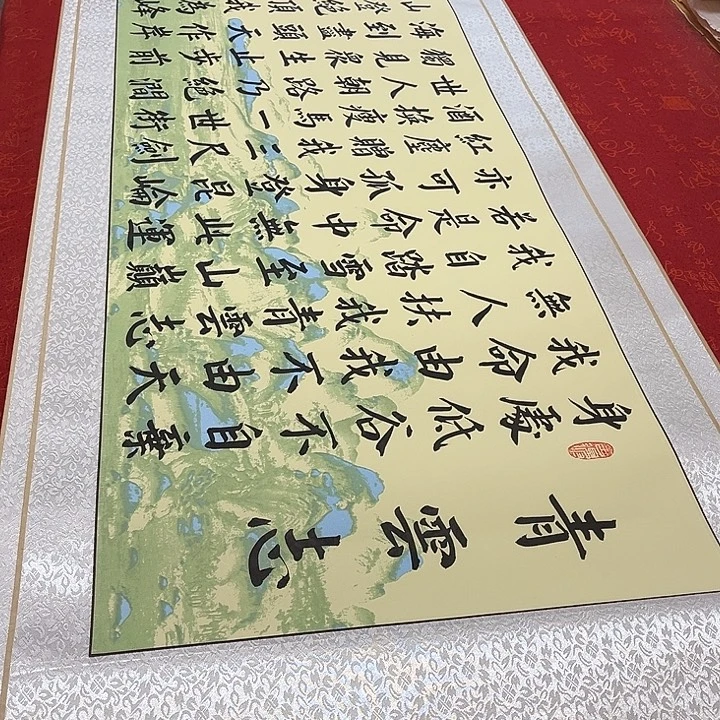 青雲志
身處低谷不自棄
我命由我不由天
無人扶我青雲志
我自踏雪至山巔
若是命中無此運
亦可孤身登昆崙
紅塵我三尺劍
酒換瘦馬一世
世人朝路乃絕澗
獨見衆生止步前
海到盡頭天作岸
山登絕頂我為峰